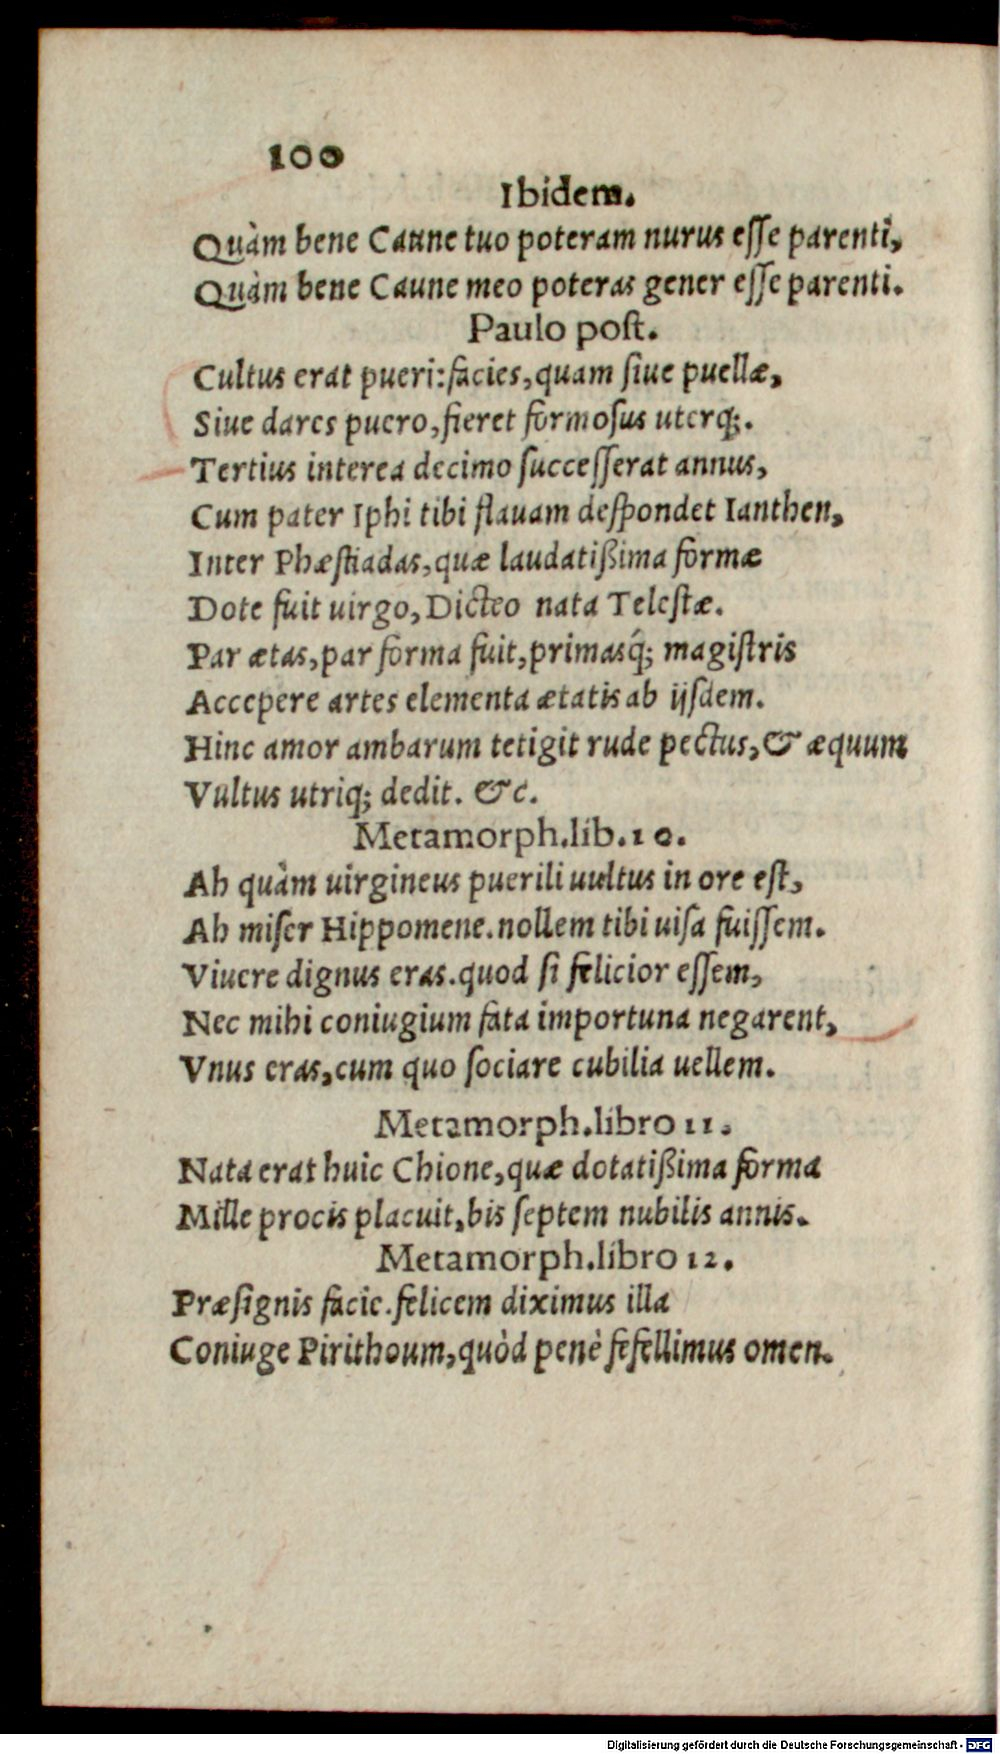 100
Ibidem.
Quàm bene Caune tuo poteram nurus eſſe parenti,
Quàm bene Caune meo poteras gener eſſe parenti.
Paulo poſt.
Cultus erat pueri: facies, quam ſiue puellæ,
Siue dares puero, fieret formoſus uterq;.
Tertius interea decimo ſucceſſerat annus,
Cum pater Iphi tibi flauam deſpondet Ianthen,
Inter Phæſtiadas, quæ laudatißima formæ
Dote fuit uirgo, Dicteo nata Teleſtæ.
Par ætas, par forma fuit, primasq́; magiſtris
Accepere artes elementa ætatis ab ijſdem.
Hinc amor ambarum tetigit rude pectus, & æquum
Vultus utriq; dedit. &c.
Metamorph. lib. 10.
Ah quàm uirgineus puerili uultus in ore eſt,
Ah miſer Hippomene. nollem tibi uiſa fuiſſem.
Viuere dignus eras. quod ſi felicior eſſem,
Nec mihi coniugium fata importuna negarent,
Vnus eras, cum quo ſociare cubilia uellem.
Metamorph. libro 11.
Nata erat huic Chione, quæ dotatißima forma
Mille procis placuit, bis ſeptem nubilis annis.
Metamorph. libro 12.
Præſignis facie. felicem diximus illa
Coniuge Pirithoum, quòd penè fefellimus omen.
Digitalisierung gefördert durch die Deutsche Forschungsgemeinschaft - DFG